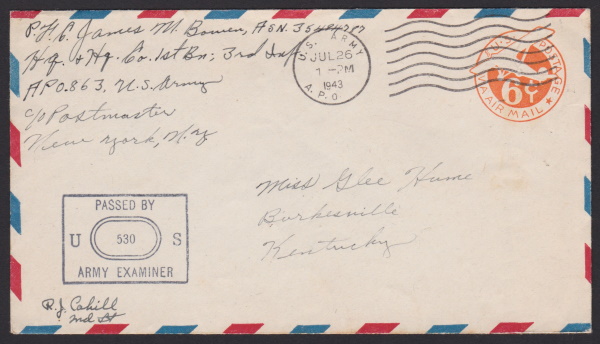 Pfc. James M. Bowen, ASN. 35484787
Hq. & Hq. Co. 1st Bn; 3rd Inf.
APO. 863, U.S. Army
c/o Postmaster
New York, N.Y.
U.S. ARMY
JUL 26
1-PM
1943
A.P.O.
U.S. POSTAGE
6¢
VIA AIR MAIL
Miss Glee Hume
Burkesville
Kentucky
PASSED BY
U 530 S
ARMY EXAMINER
R.J. Cahill
2nd Lt